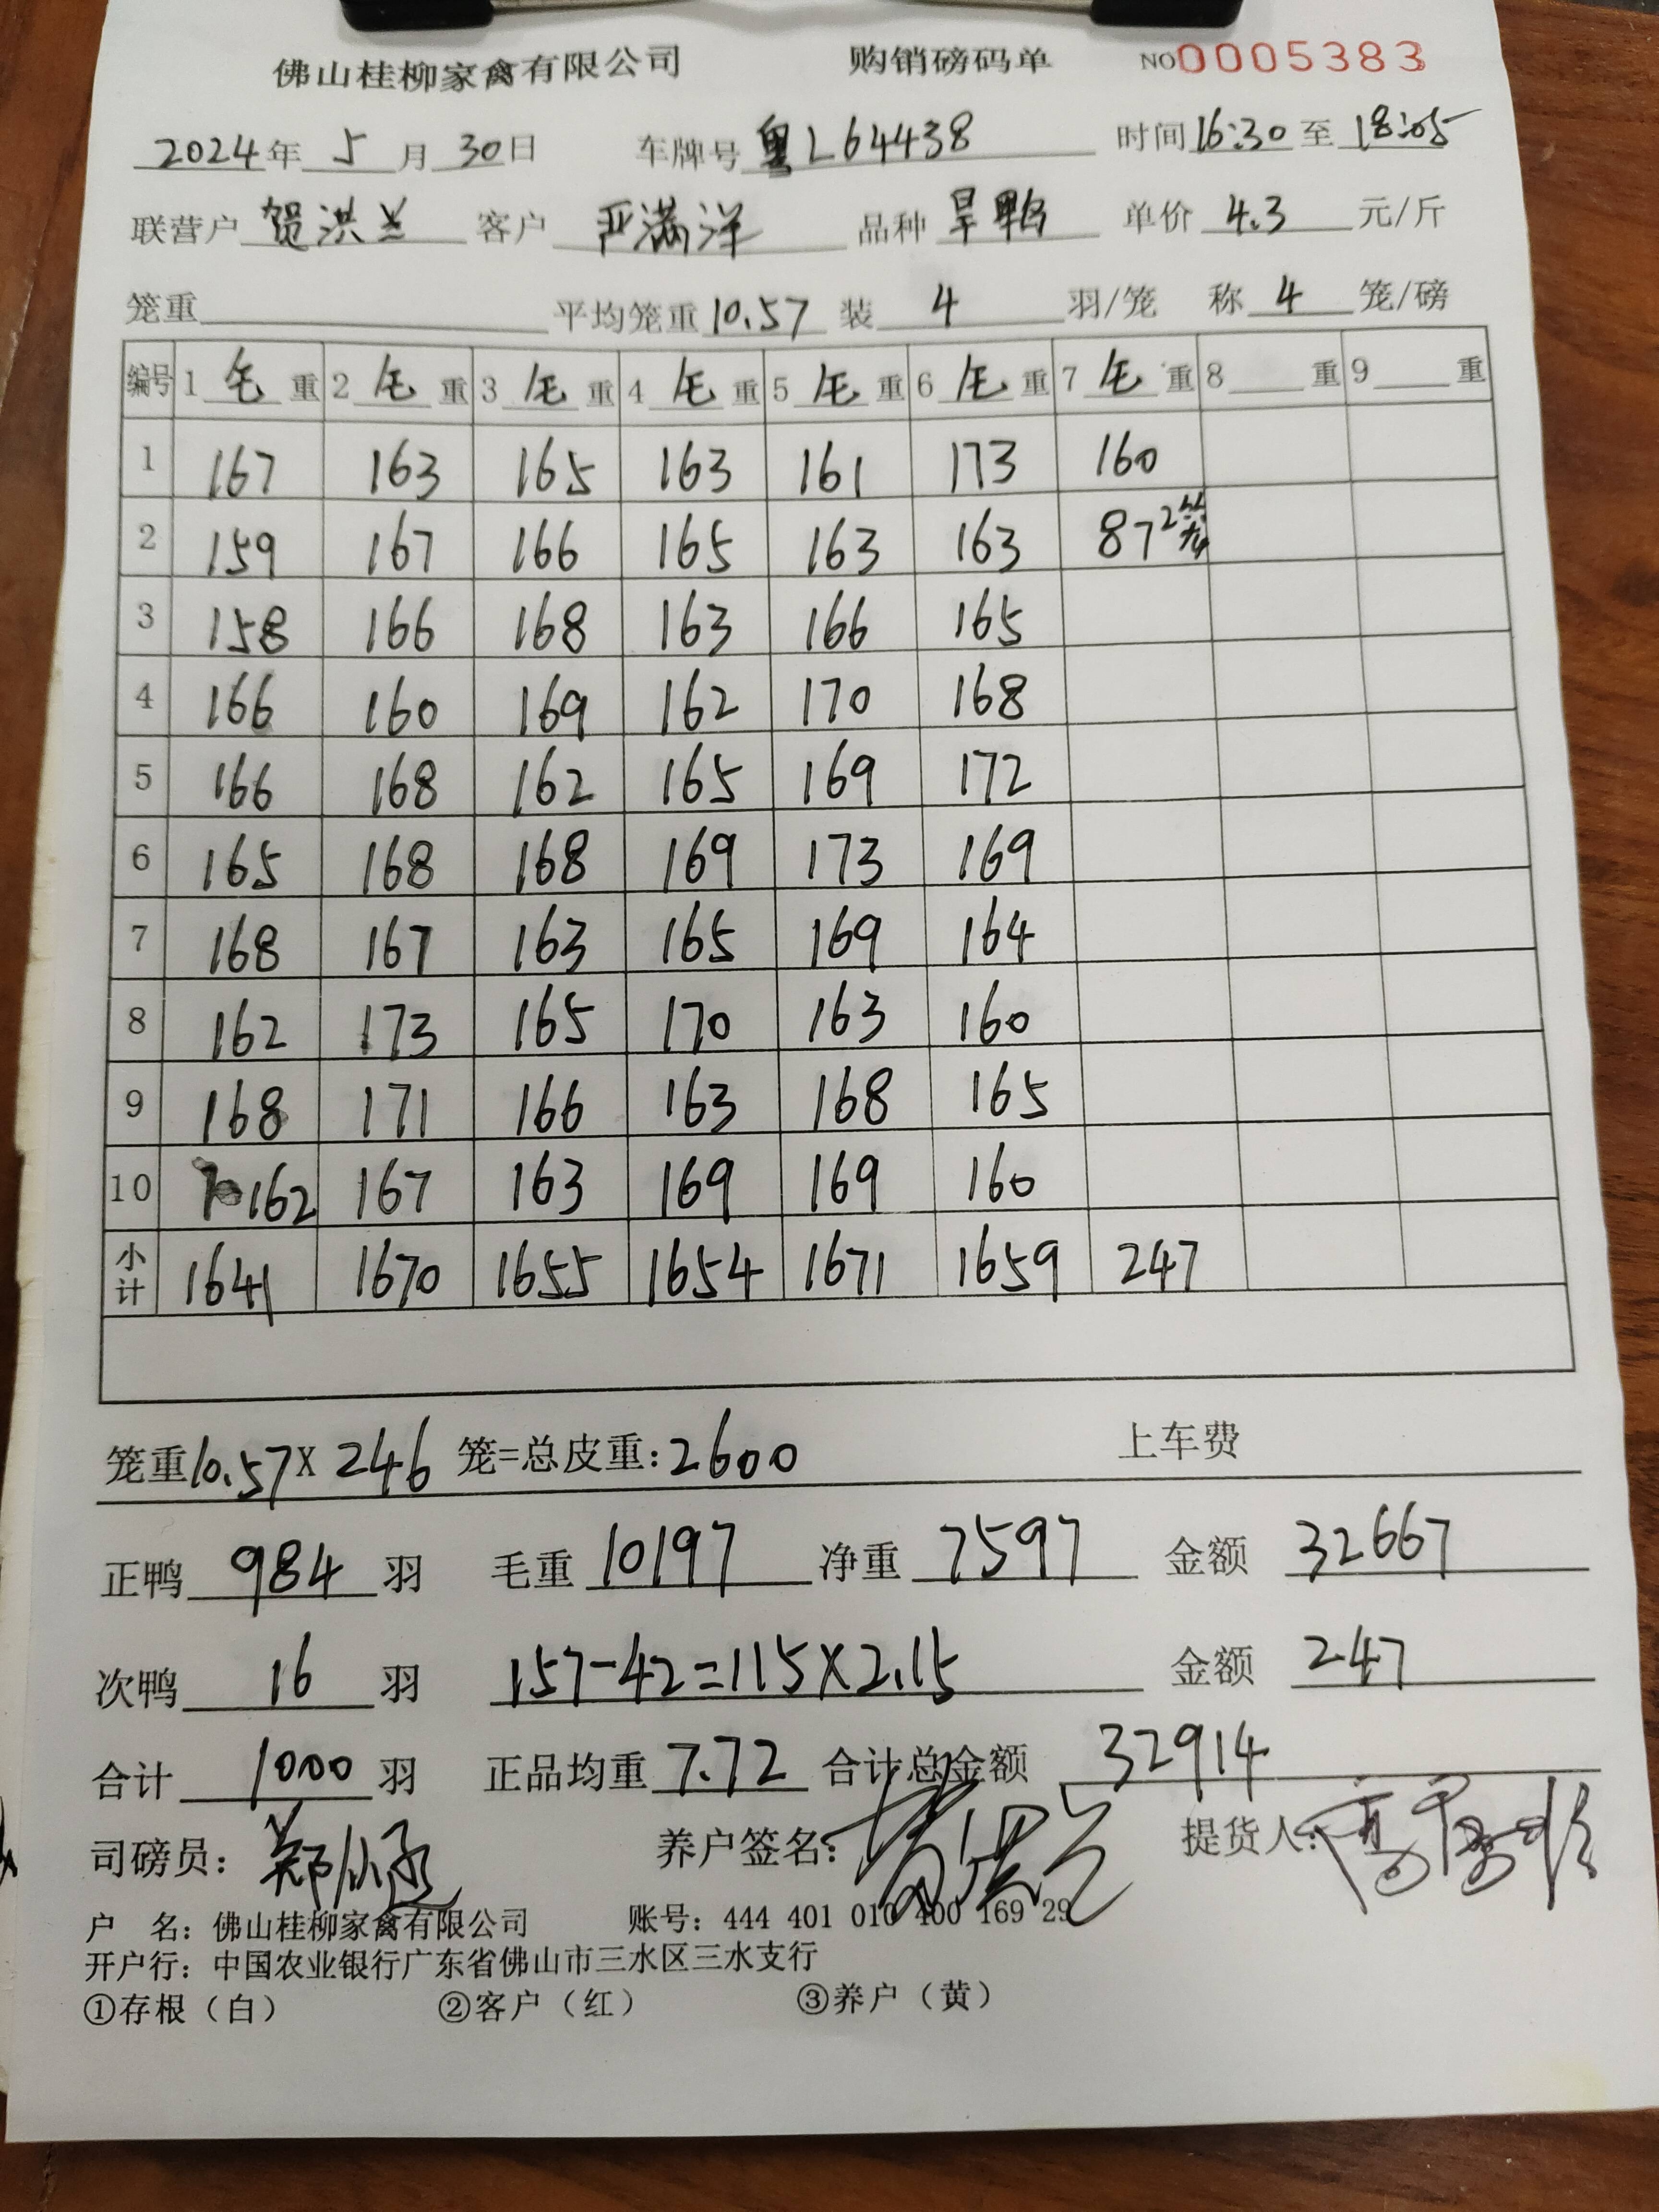 佛山桂柳家禽有限公司 购销磅码单 NO0005383
2024年 5 月 30日 车牌号 粤L64438 时间16:30至18:05
联营户 贺洪兰 客户 严满洋 品种 旱鸭 单价 4.3 元/斤
笼重 平均笼重10.57 装 4 羽/笼 称 4 笼/磅
编号 1 毛 重 2 毛 重 3 毛 重 4 毛 重 5 毛 重 6 毛 重 7 毛 重 8 重 9 重
1 167 163 165 163 161 173 160
2 159 167 166 165 163 163 87 2笼
3 158 166 168 163 166 165
4 166 160 169 162 170 168
5 166 168 162 165 169 172
6 165 168 168 169 173 169
7 168 167 163 165 169 164
8 162 173 165 170 163 160
9 168 171 166 163 168 165
10 162 167 163 169 169 160
小计 1641 1670 1655 1654 1671 1659 247
笼重10.57X 246 笼=总皮重:2600 上车费
正鸭 984 羽 毛重 10197 净重 7597 金额 32667
次鸭 16 羽 157-42=115X2.15 金额 247
合计 1000 羽 正品均重 7.72 合计总金额 32914
司磅员: 养户签名: 提货人:
户 名: 佛山桂柳家禽有限公司 账号: 444 401 010 400 169 29
开户行: 中国农业银行广东省佛山市三水区三水支行
①存根（白） ②客户（红） ③养户（黄）